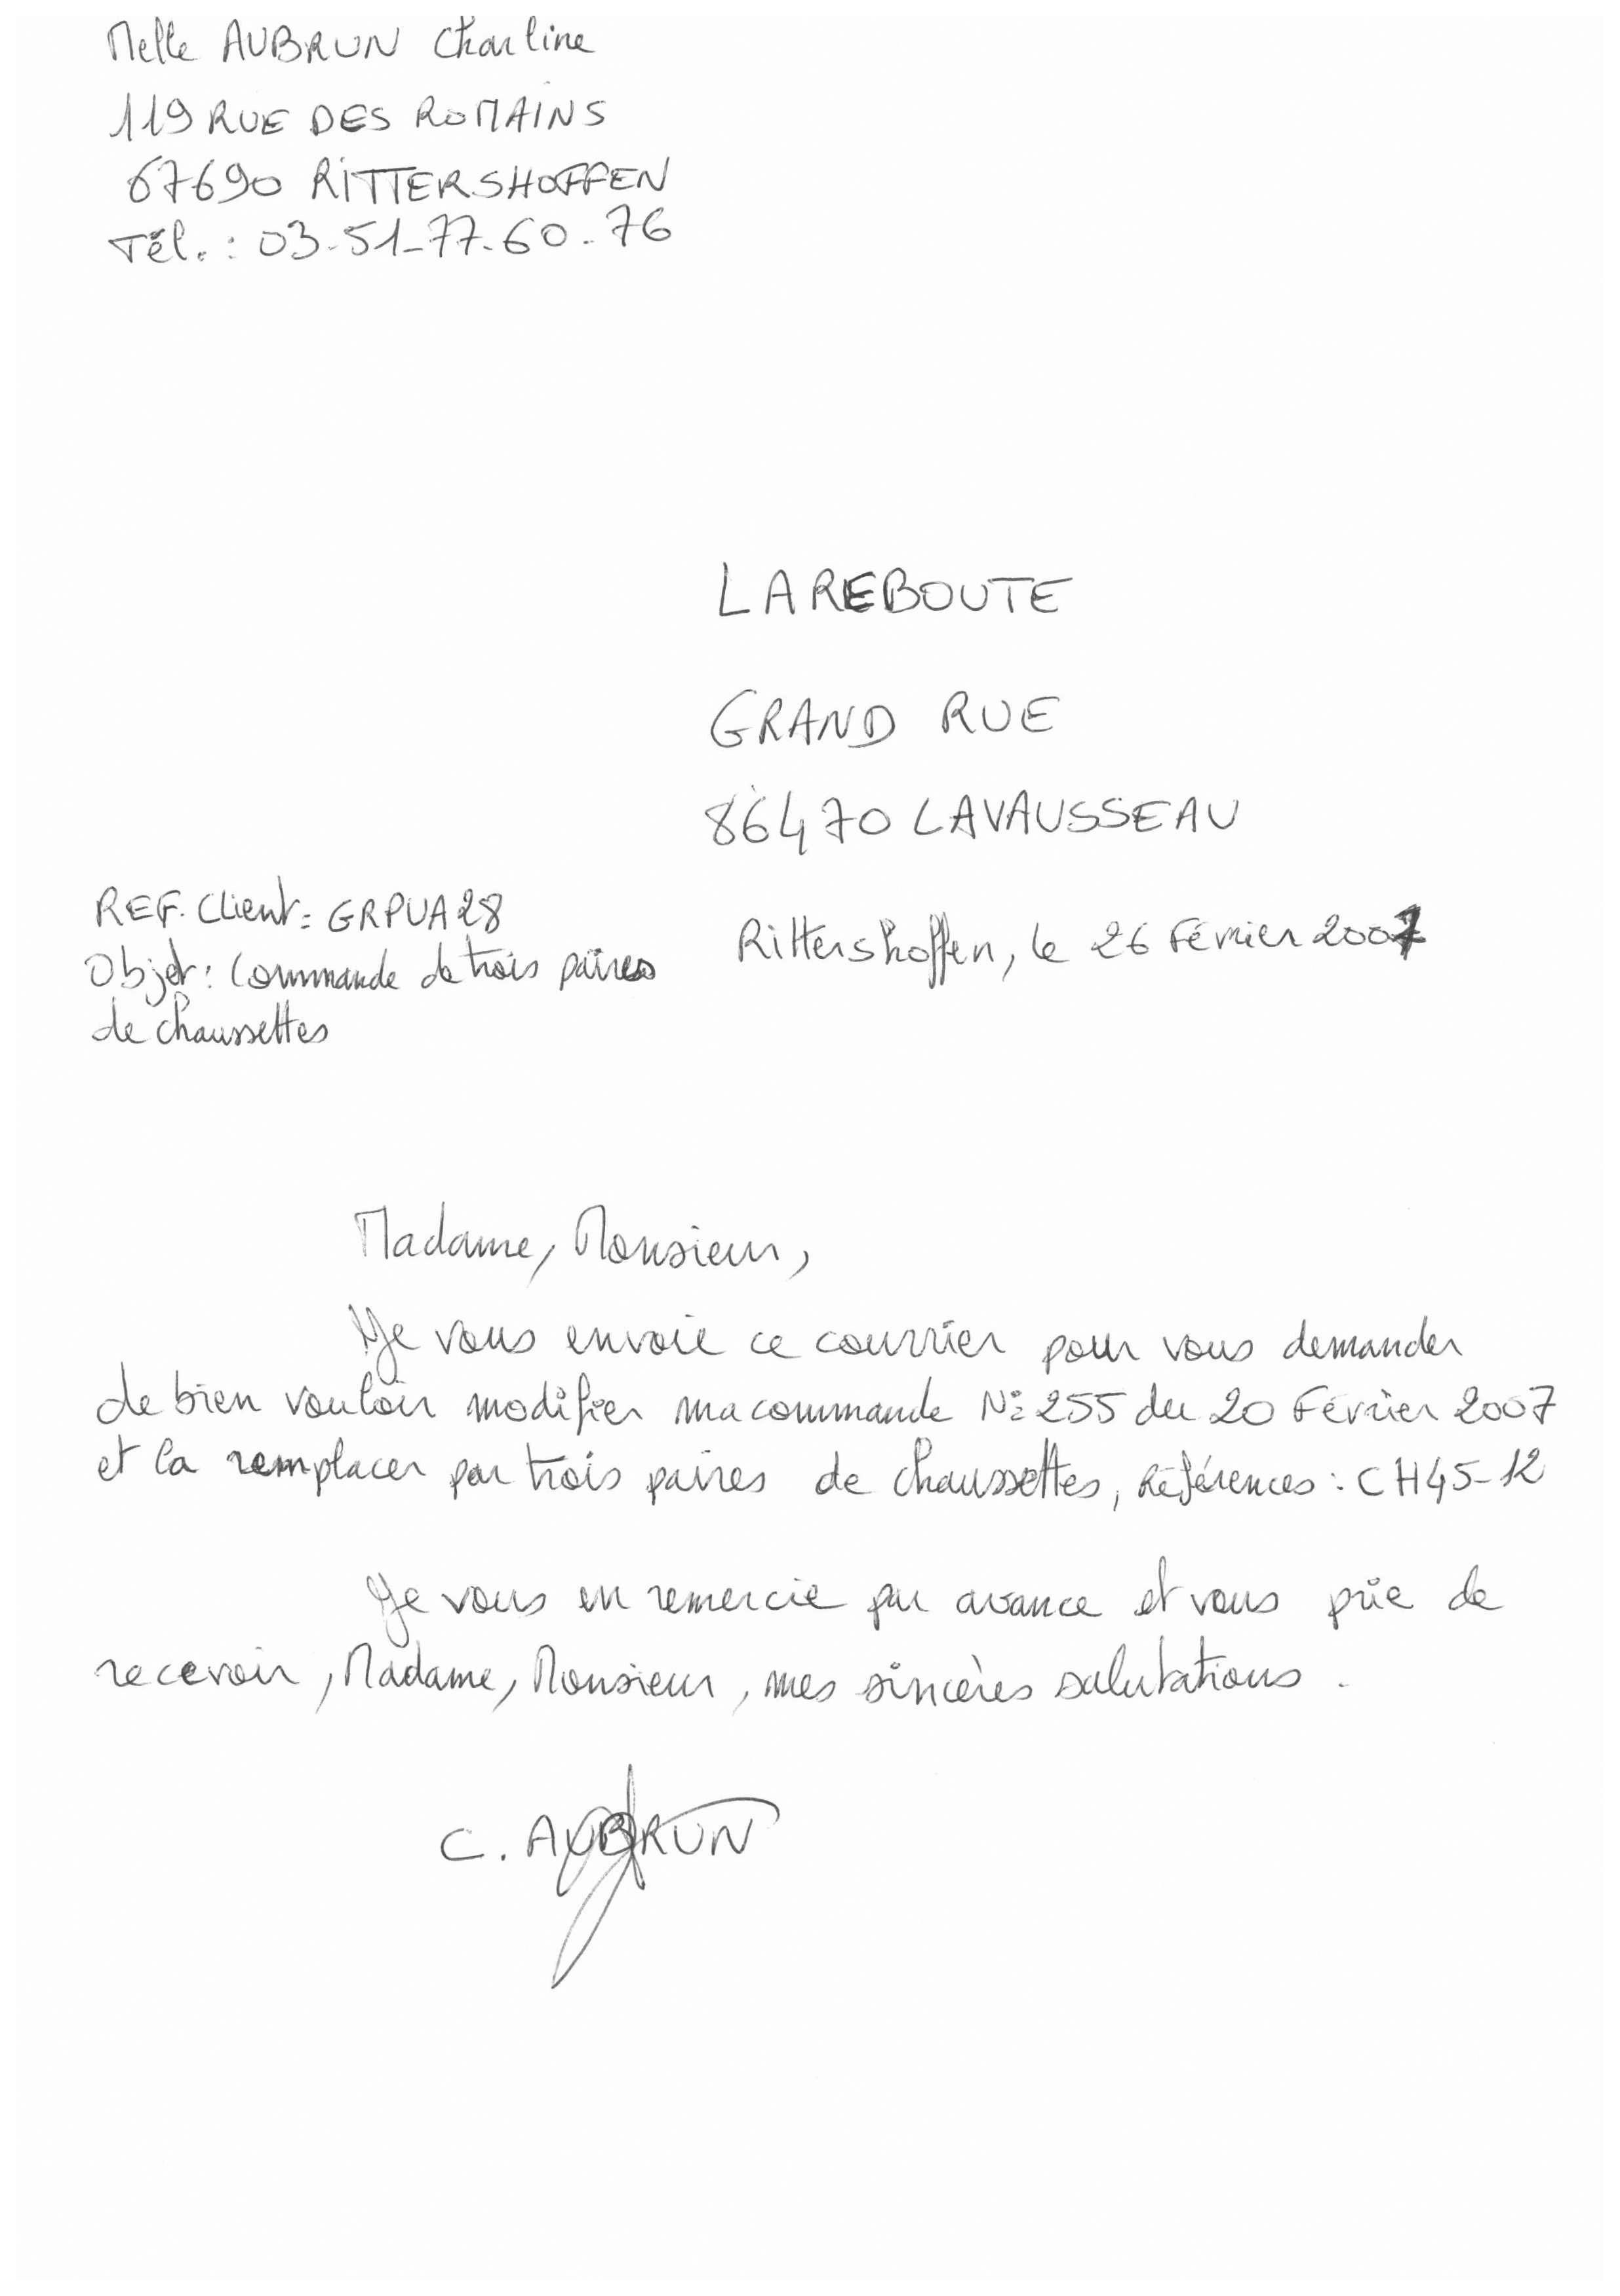 Melle AUBRUN Charline
119 RUE DES ROMAINS
67690 RITTERSHOFFEN
Tél. : 03-51-77-60-76
LAREBOUTE
GRAND RUE
86470 LAVAUSSEAU
REF. Client : GRPUA28
Rittershoffen, le 26 Février 2007
Objet : Commande de trois paires
de chaussettes
Madame, Monsieur,
Je vous envoie ce courrier pour vous demander
de bien vouloir modifier ma commande N° 255 du 20 Février 2007
et la remplacer par trois paires de chaussettes, Références : CH45-12
Je vous en remercie par avance et vous prie de
recevoir, Madame, Monsieur, mes sincères salutations.
C. AUBRUN